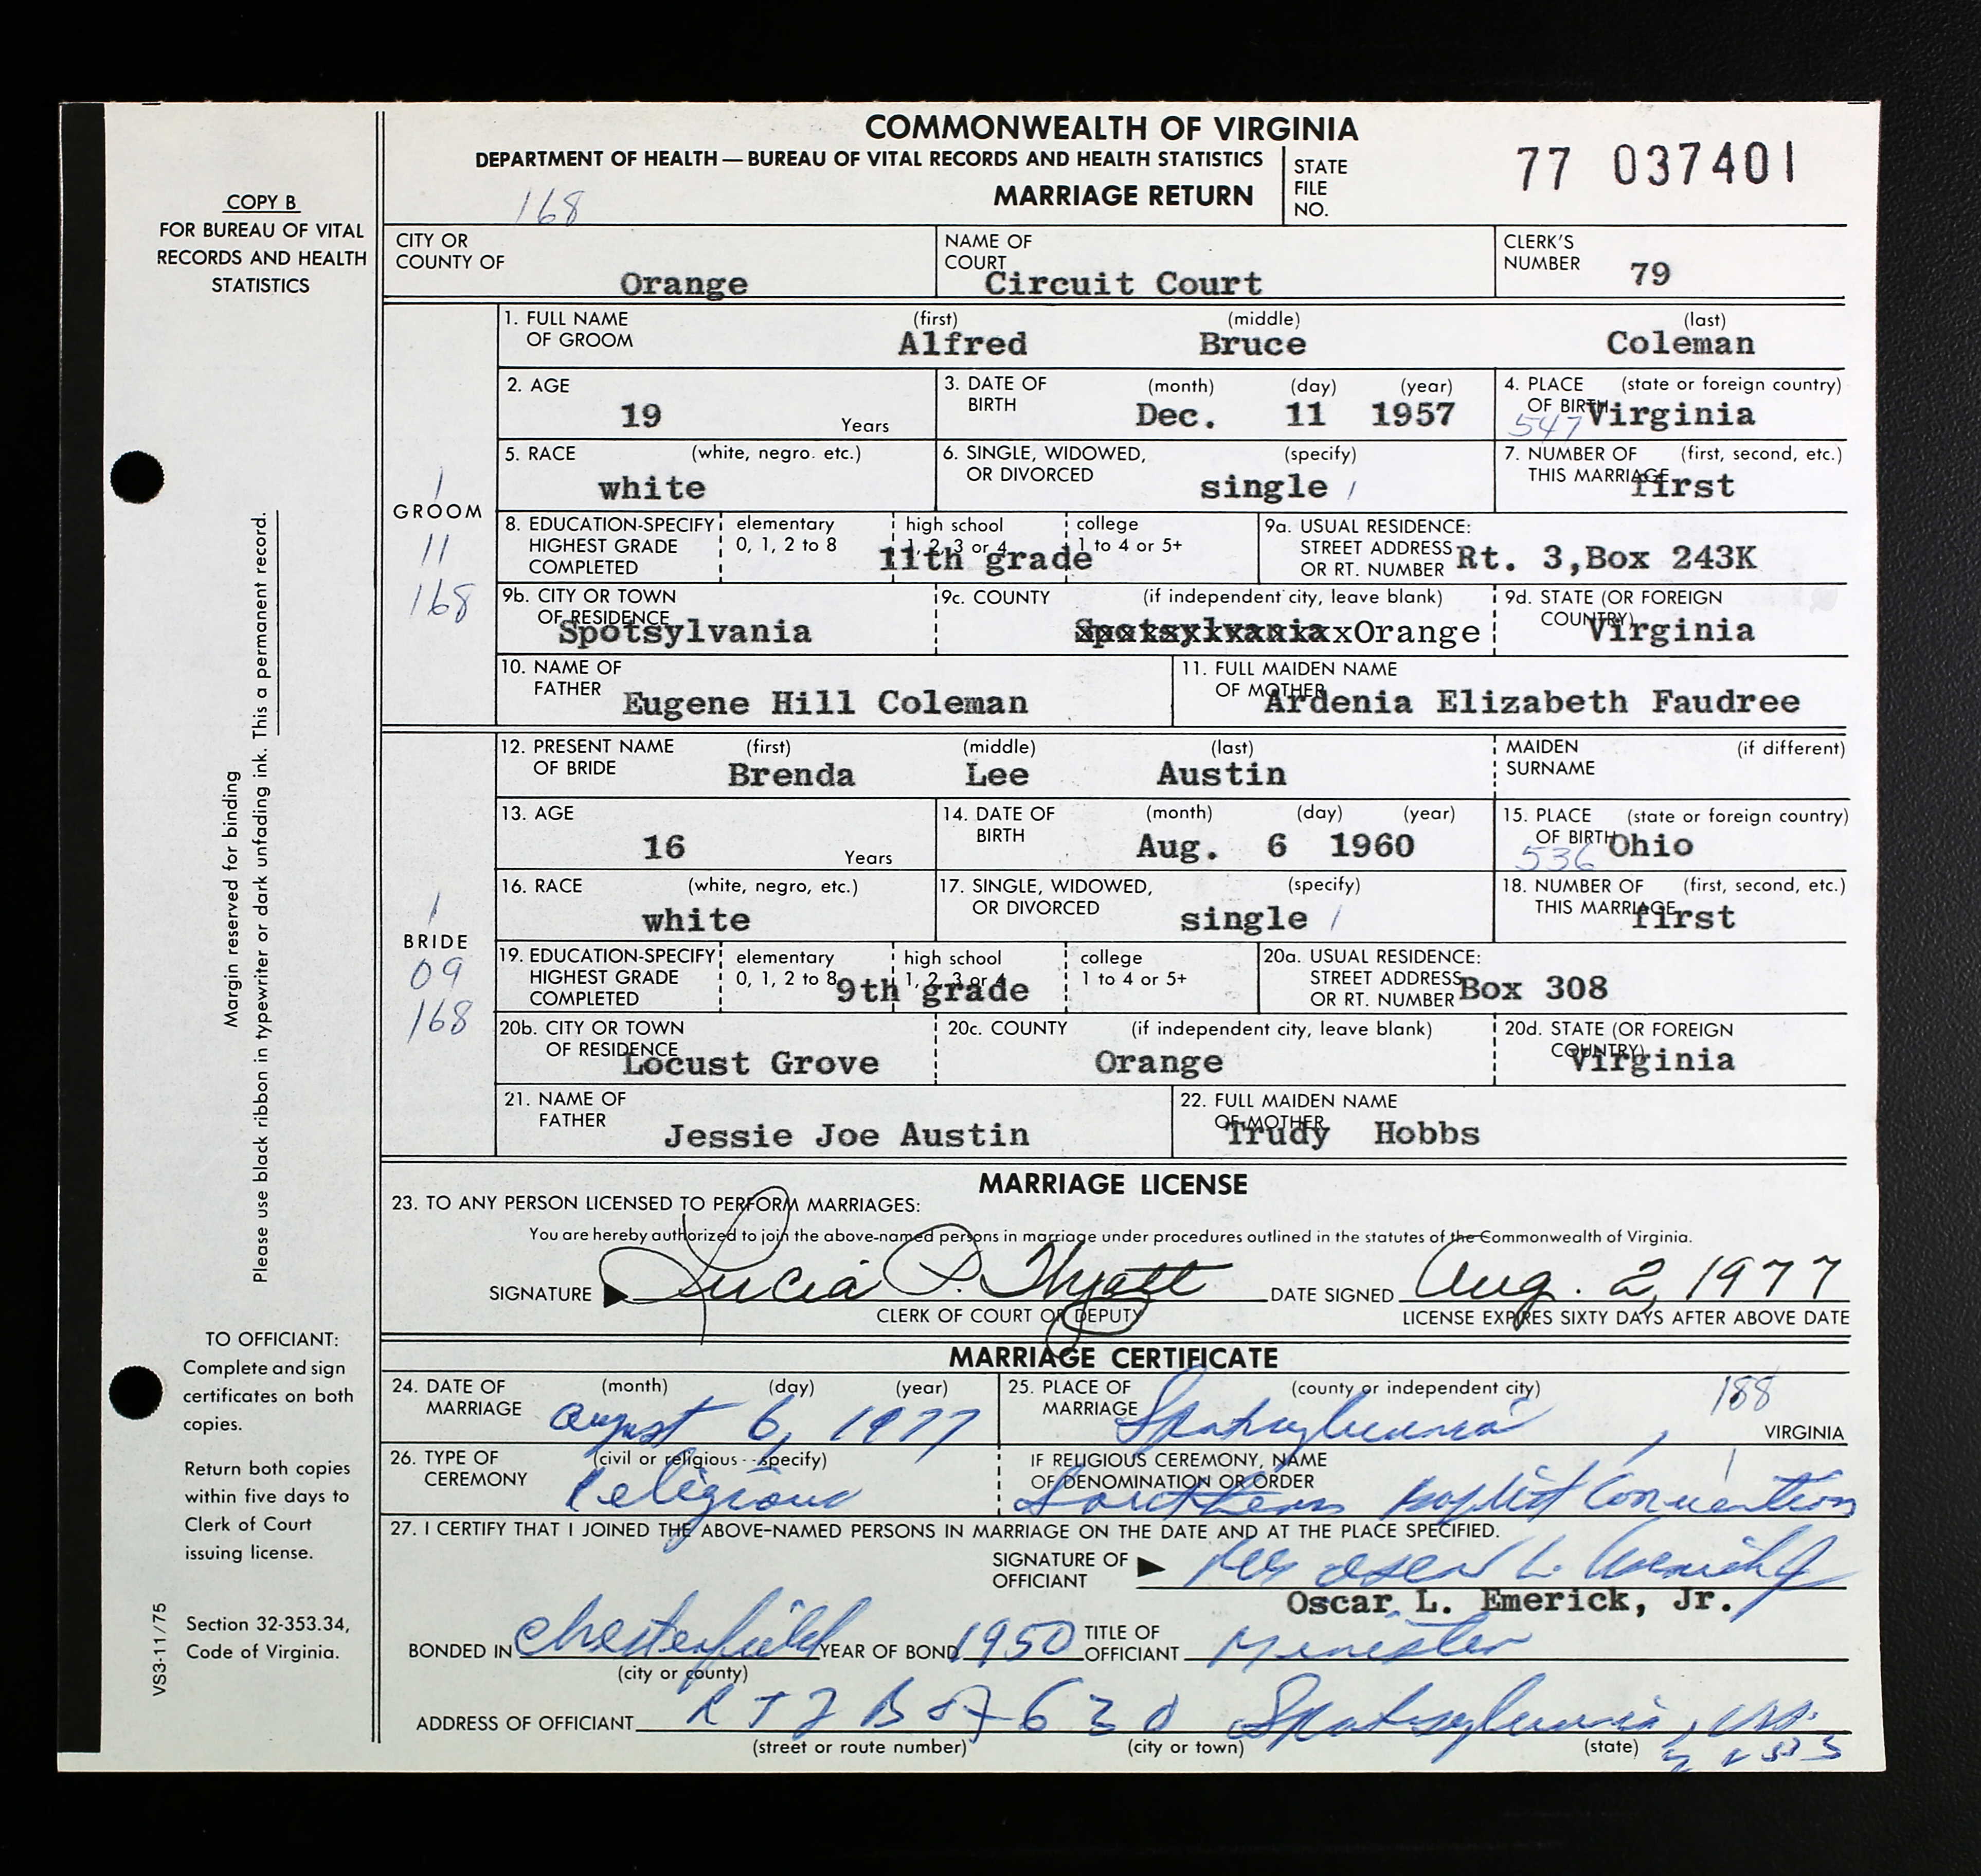 COMMONWEALTH OF VIRGINIA
DEPARTMENT OF HEALTH — BUREAU OF VITAL RECORDS AND HEALTH STATISTICS
168 MARRIAGE RETURN
STATE FILE NO. 77 037401
COPY B
FOR BUREAU OF VITAL
RECORDS AND HEALTH
STATISTICS
CITY OR COUNTY OF Orange
NAME OF COURT Circuit Court
CLERK'S NUMBER 79
GROOM
1
11
168
1. FULL NAME OF GROOM (first) Alfred (middle) Bruce (last) Coleman
2. AGE 19 Years
3. DATE OF BIRTH (month) (day) (year) Dec. 11 1957
4. PLACE OF BIRTH (state or foreign country) Virginia 547
5. RACE (white, negro. etc.) white
6. SINGLE, WIDOWED, OR DIVORCED (specify) single 1
7. NUMBER OF THIS MARRIAGE (first, second, etc.) first
8. EDUCATION-SPECIFY HIGHEST GRADE COMPLETED elementary 0, 1, 2 to 8 high school 1, 2, 3 or 4 college 1 to 4 or 5+ 11th grade
9a. USUAL RESIDENCE: STREET ADDRESS OR RT. NUMBER Rt. 3,Box 243K
9b. CITY OR TOWN OF RESIDENCE Spotsylvania
9c. COUNTY (if independent city, leave blank) Spotsylvania Orange
9d. STATE (OR FOREIGN COUNTRY) Virginia
10. NAME OF FATHER Eugene Hill Coleman
11. FULL MAIDEN NAME OF MOTHER Ardenia Elizabeth Faudree
BRIDE
1
09
168
12. PRESENT NAME OF BRIDE (first) Brenda (middle) Lee (last) Austin
MAIDEN SURNAME (if different)
13. AGE 16 Years
14. DATE OF BIRTH (month) (day) (year) Aug. 6 1960
15. PLACE OF BIRTH (state or foreign country) Ohio 536
16. RACE (white, negro, etc.) white
17. SINGLE, WIDOWED, OR DIVORCED (specify) single 1
18. NUMBER OF THIS MARRIAGE (first, second, etc.) first
19. EDUCATION-SPECIFY HIGHEST GRADE COMPLETED elementary 0, 1, 2 to 8 high school 1, 2, 3 or 4 college 1 to 4 or 5+ 9th grade
20a. USUAL RESIDENCE: STREET ADDRESS OR RT. NUMBER Box 308
20b. CITY OR TOWN OF RESIDENCE Locust Grove
20c. COUNTY (if independent city, leave blank) Orange
20d. STATE (OR FOREIGN COUNTRY) Virginia
21. NAME OF FATHER Jessie Joe Austin
22. FULL MAIDEN NAME OF MOTHER Trudy Hobbs
Margin reserved for binding
Please use black ribbon in typewriter or dark unfading ink. This a permanent record.
MARRIAGE LICENSE
23. TO ANY PERSON LICENSED TO PERFORM MARRIAGES:
You are hereby authorized to join the above-named persons in marriage under procedures outlined in the statutes of the Commonwealth of Virginia.
SIGNATURE Lucia P. Hyatt DATE SIGNED Aug. 2, 1977
CLERK OF COURT OR DEPUTY LICENSE EXPIRES SIXTY DAYS AFTER ABOVE DATE
MARRIAGE CERTIFICATE
24. DATE OF MARRIAGE (month) (day) (year) August 6, 1977
25. PLACE OF MARRIAGE (county or independent city) Spotsylvania, 188 VIRGINIA
26. TYPE OF CEREMONY (civil or religious - specify) Religious
IF RELIGIOUS CEREMONY, NAME OF DENOMINATION OR ORDER Southern Baptist Convention 1
27. I CERTIFY THAT I JOINED THE ABOVE-NAMED PERSONS IN MARRIAGE ON THE DATE AND AT THE PLACE SPECIFIED.
SIGNATURE OF OFFICIANT Oscar L. Emerick Jr
Oscar L. Emerick, Jr.
BONDED IN Chesterfield YEAR OF BOND 1950 TITLE OF OFFICIANT Minister
(city or county)
ADDRESS OF OFFICIANT Rt 2 Box 630 Spotsylvania, Va.
(street or route number) (city or town) (state)
TO OFFICIANT:
Complete and sign
certificates on both
copies.
Return both copies
within five days to
Clerk of Court
issuing license.
Section 32-353.34,
Code of Virginia.
VS3-11/75